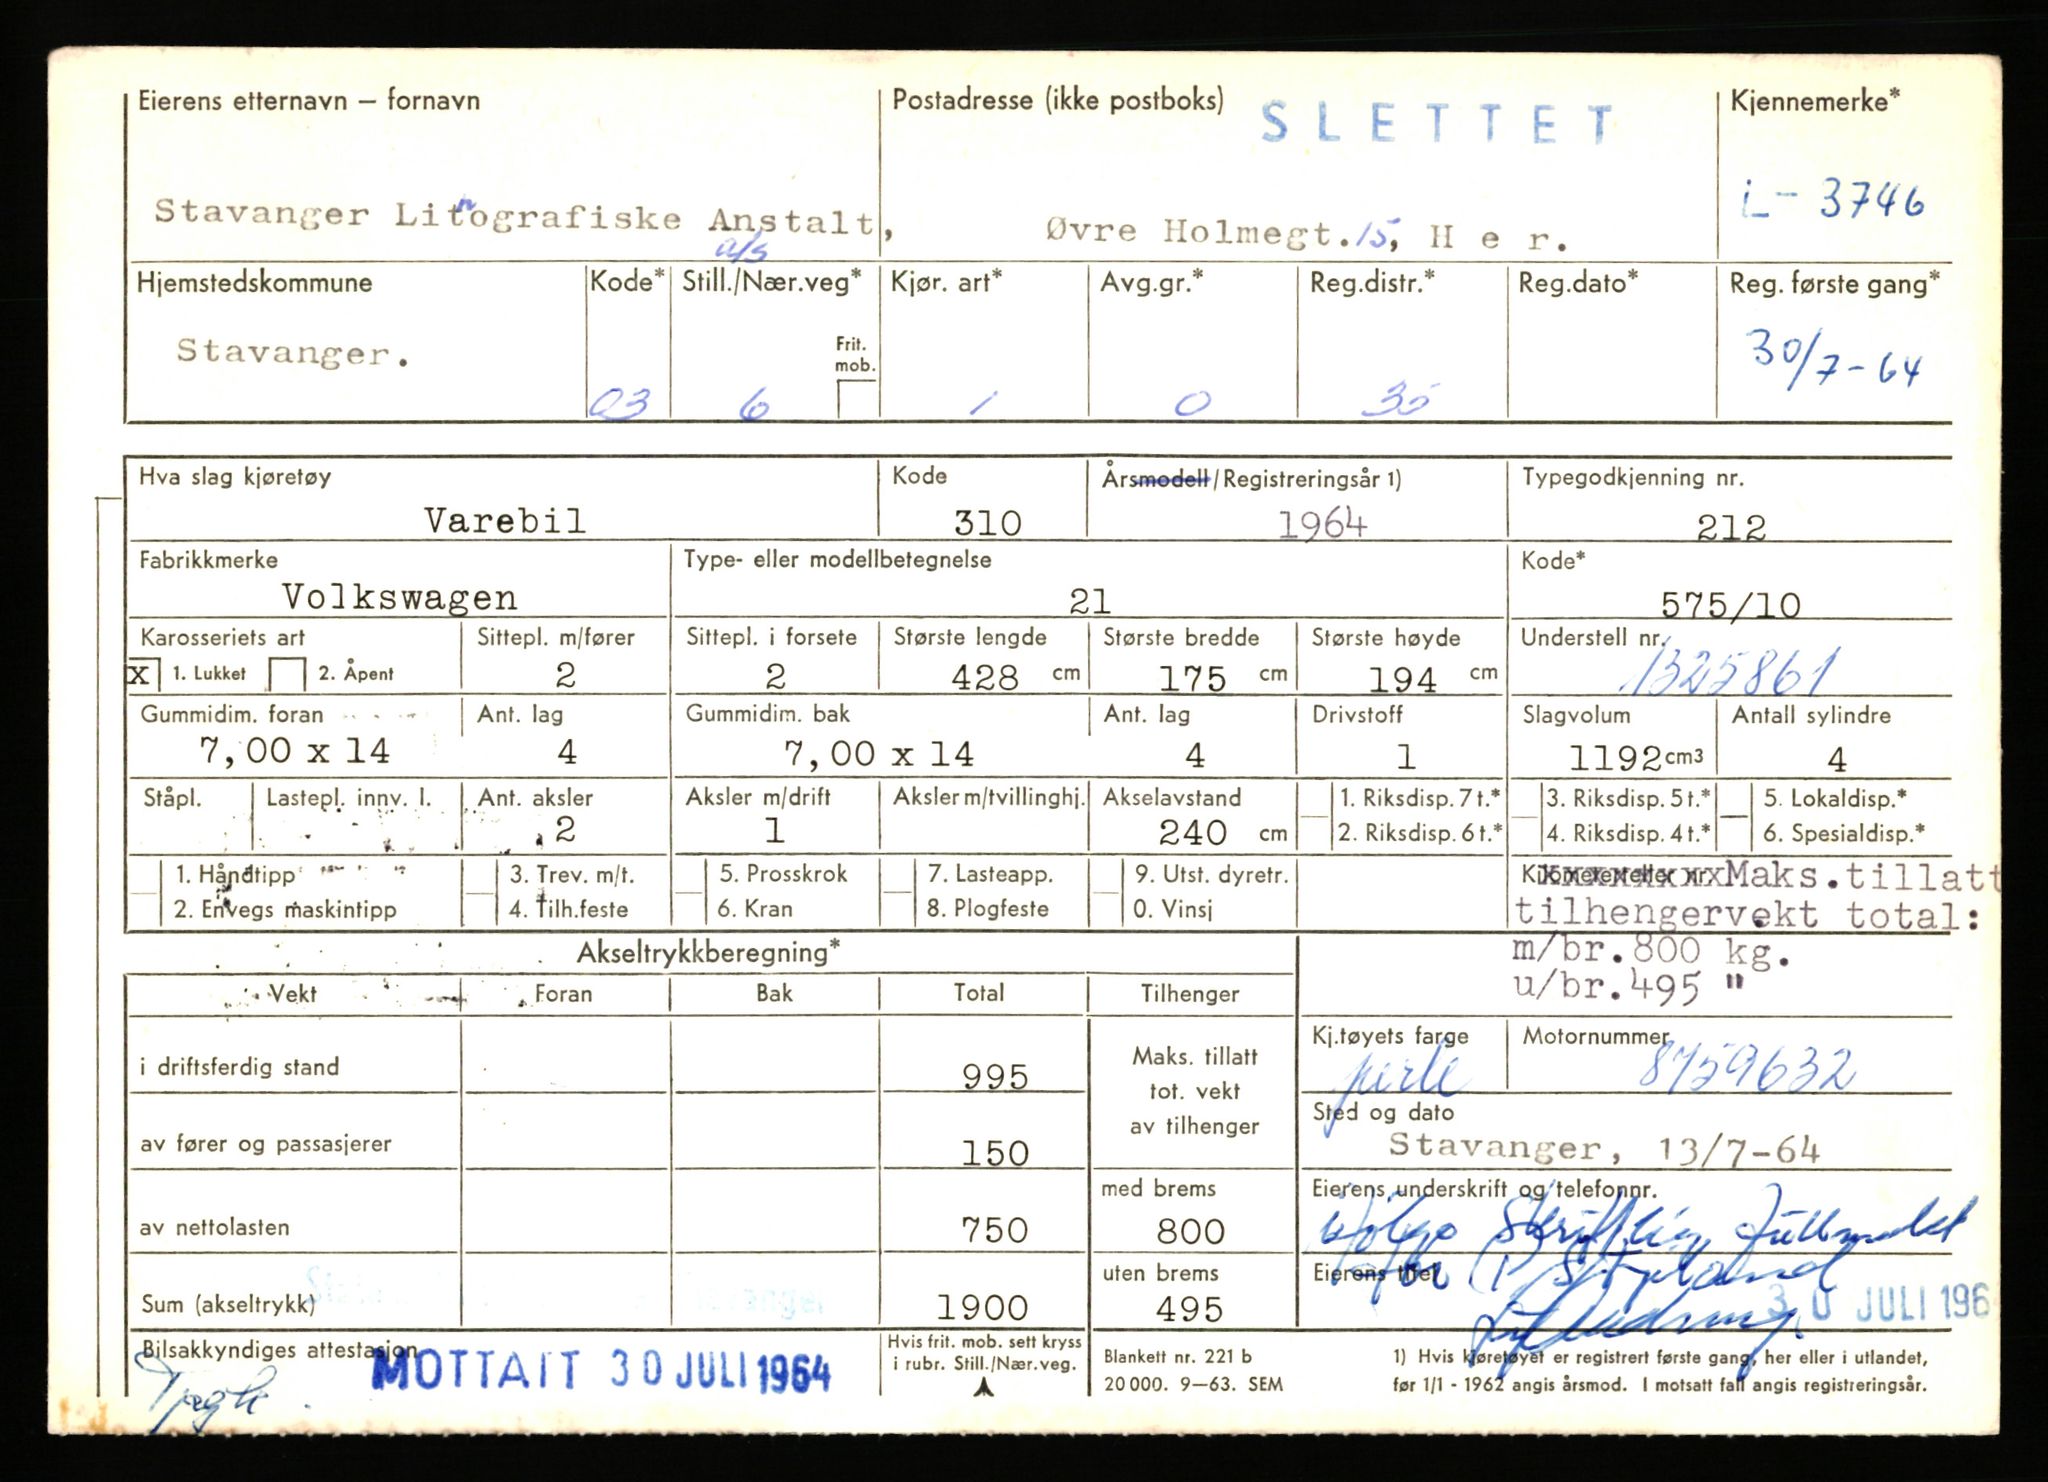 Eierens etternavn – fornavn
Postadresse (ikke postboks)
SLETTET
Kjennemerke*
Stavanger Lithografiske Anstalt,
a/s
Øvre Holmegt.15, H e r.
L- 3746
Hjemstedskommune
Kode*
Still./Nær.veg*
Kjør. art*
Avg.gr.*
Reg.distr.*
Reg.dato*
Reg. første gang*
Stavanger.
Frit. mob.
03
6
1
0
35
30/7-64
Hva slag kjøretøy
Kode
Årsmodell/Registreringsår 1)
Typegodkjenning nr.
Varebil
310
1964
212
Fabrikkmerke
Type- eller modellbetegnelse
Kode*
Volkswagen
21
575/10
Karosseriets art
Sittepl. m/fører
Sittepl. i forsete
Største lengde
Største bredde
Største høyde
Understell nr.
X 1. Lukket 2. Åpent
2
2
428 cm
175 cm
194 cm
1325861
Gummidim. foran
Ant. lag
Gummidim. bak
Ant. lag
Drivstoff
Slagvolum
Antall sylindre
7,00 x 14
4
7,00 x 14
4
1
1192 cm3
4
Ståpl.
Lastepl. innv. l.
Ant. aksler
Aksler m/drift
Aksler m/tvillinghj.
Akselavstand
1. Riksdisp. 7 t.*
3. Riksdisp. 5 t.*
5. Lokaldisp.*
2
1
240 cm
2. Riksdisp. 6 t.*
4. Riksdisp. 4 t.*
6. Spesialdisp.*
1. Håndtipp
3. Trev. m/t.
5. Prosskrok
7. Lasteapp.
9. Utst. dyretr.
Maks.tillatt
2. Envegs maskintipp
4. Tilh.feste
6. Kran
8. Plogfeste
0. Vinsj
tilhengervekt total:
m/br.800 kg.
u/br.495 "
Akseltrykkberegning*
Vekt
Foran
Bak
Total
Tilhenger
i driftsferdig stand
995
Maks. tillatt
tot. vekt
av tilhenger
Kj.tøyets farge
Motornummer
perle
8759632
av fører og passasjerer
150
Sted og dato
Stavanger, 13/7-64
av nettolasten
750
med brems
800
Eierens underskrift og telefonnr.
Sum (akseltrykk)
1900
uten brems
495
Eierens titel
30 JULI 196
Bilsakkyndiges attestasjon
MOTTATT 30 JULI 1964
Hvis frit. mob. sett kryss
i rubr. Still./Nær.veg.
Blankett nr. 221 b
20 000. 9–63. SEM
1) Hvis kjøretøyet er registrert første gang, her eller i utlandet,
før 1/1 - 1962 angis årsmod. I motsatt fall angis registreringsår.